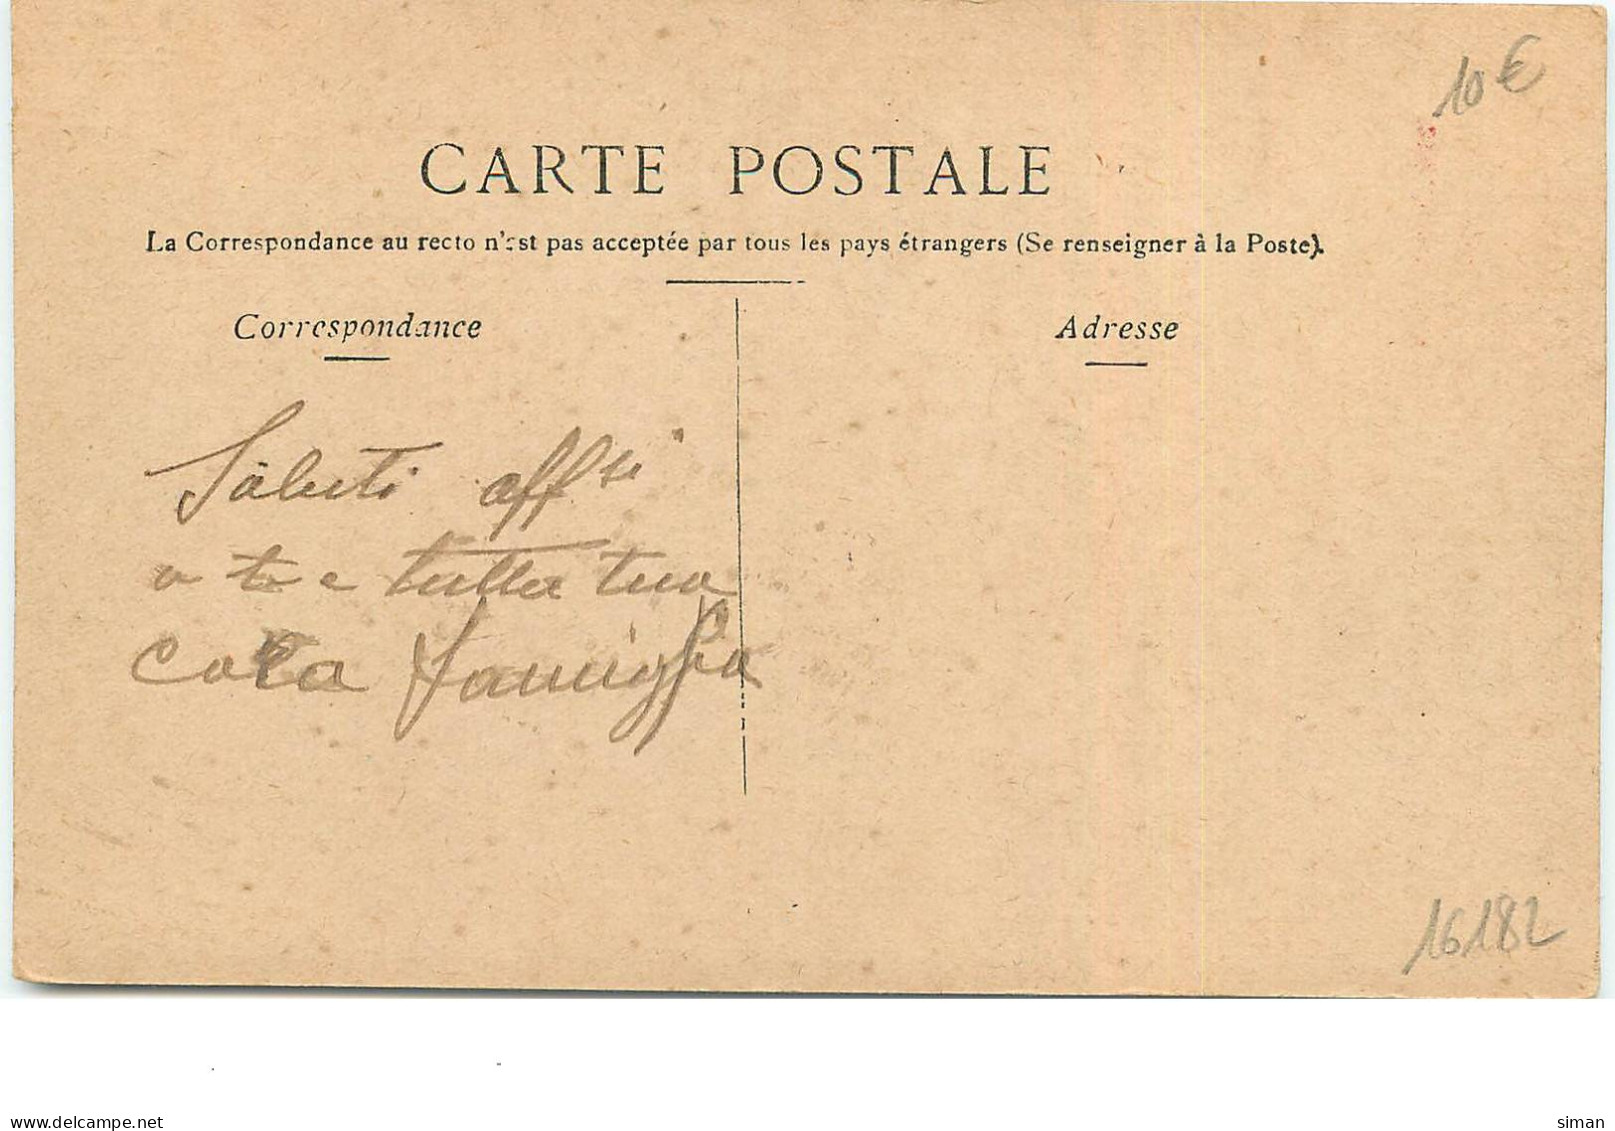 10 €
CARTE POSTALE
La Correspondance au recto n'est pas acceptée par tous les pays étrangers (Se renseigner à la Poste).
Correspondance
Adresse
Saluti affti
a te e tutta tua
cara famiglia
16182
www.delcampe.net
siman